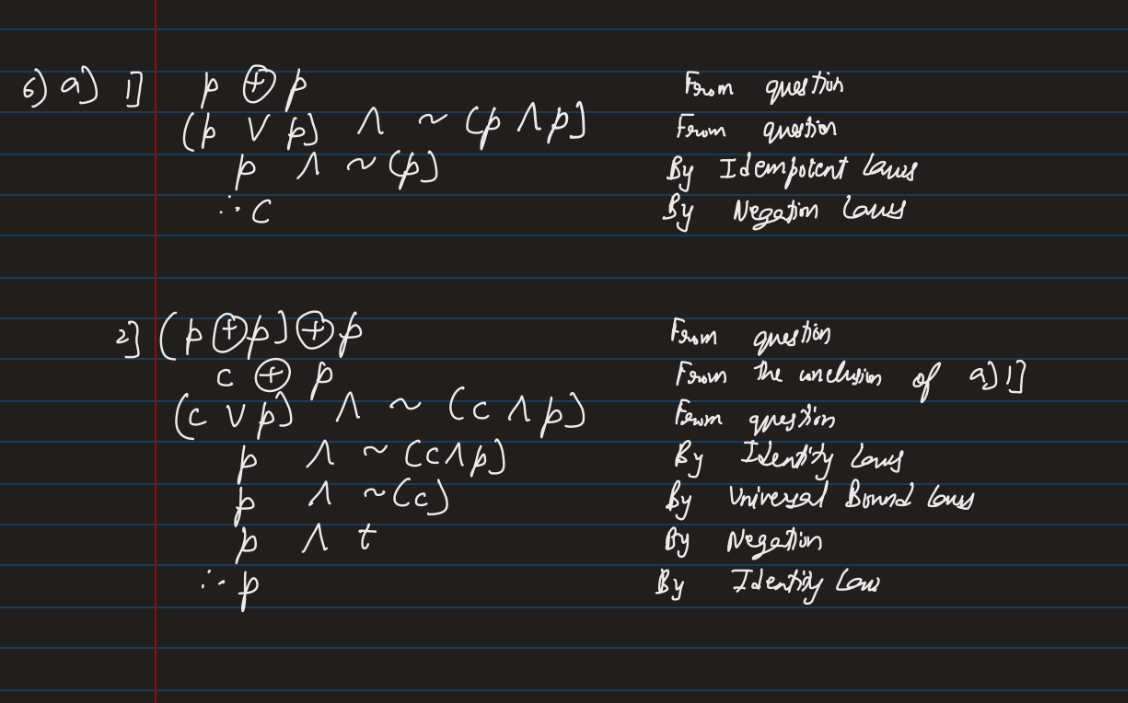 6) a) 1] p ⊕ p From question
(p ∨ p) ∧ ~ (p ∧ p] From question
p ∧ ~ (p) By Idempotent Laws
∴ C By Negation Laws
2] (p ⊕ p) ⊕ p From question
c ⊕ p From the conclusion of a) 1]
(c ∨ p) ∧ ~ (c ∧ p) From question
p ∧ ~ (c ∧ p) By Identity Laws
p ∧ ~ (c) By Universal Bound Laws
p ∧ t By Negation
∴ p By Identity Law